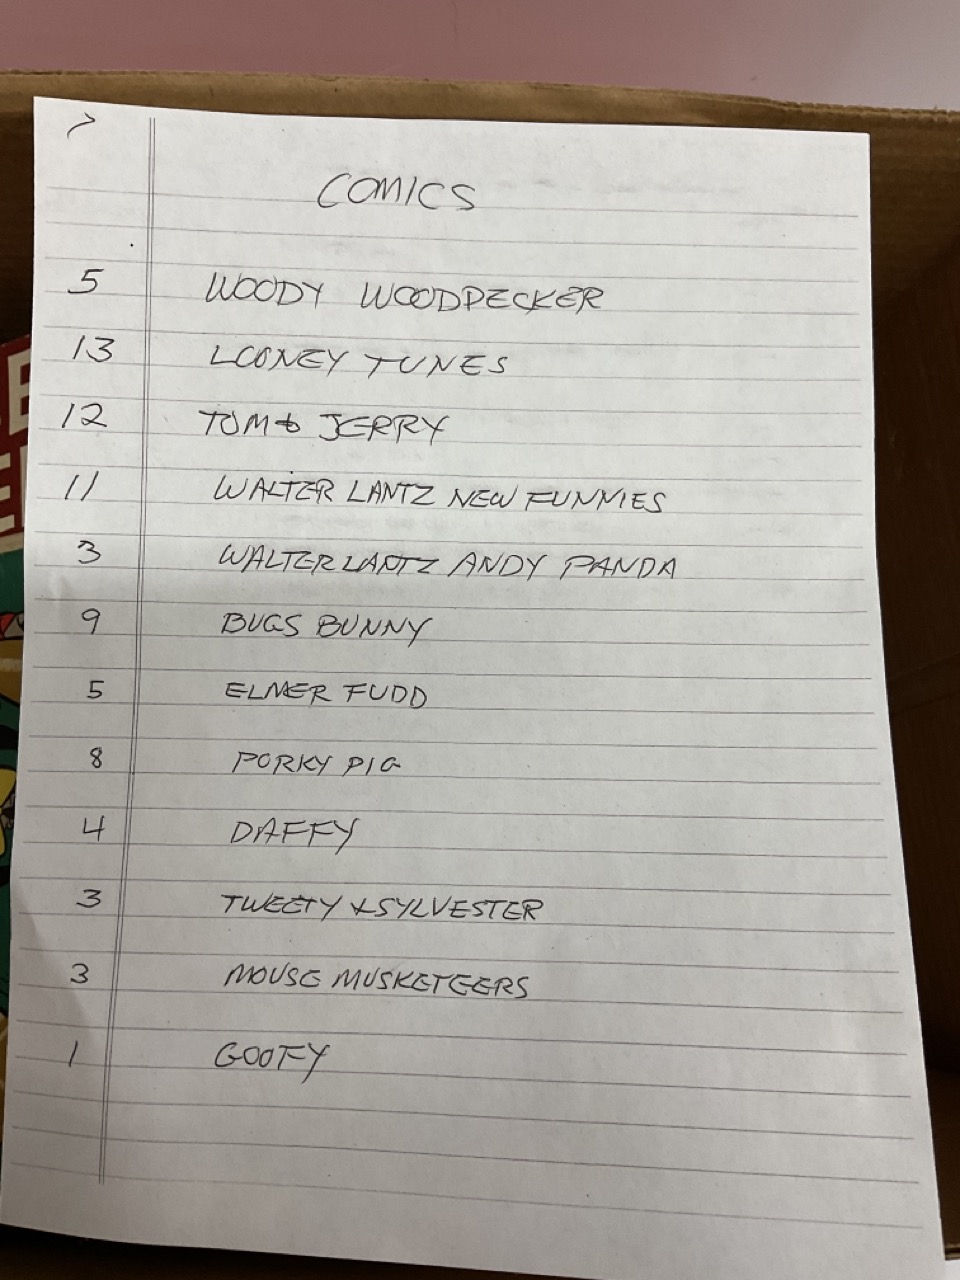 COMICS
5 WOODY WOODPECKER
13 LOONEY TUNES
12 TOM & JERRY
11 WALTER LANTZ NEW FUNNIES
3 WALTER LANTZ ANDY PANDA
9 BUGS BUNNY
5 ELMER FUDD
8 PORKY PIG
4 DAFFY
3 TWEETY & SYLVESTER
3 MOUSE MUSKETEERS
1 GOOFY